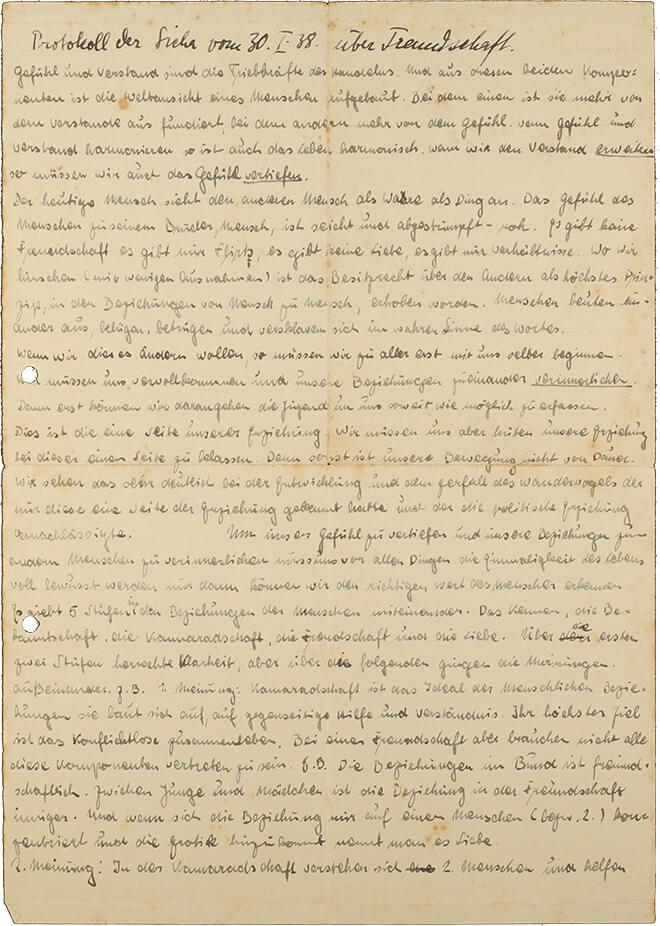 Protokoll der Sicha vom 30. I. 38. über Freundschaft.
Gefühl und Verstand sind die Triebkräfte des Handelns. Und aus diesen beiden Kompo-
nenten ist die Weltansicht eines Menschen aufgebaut. Bei dem einen ist sie mehr von
dem Verstande aus fundiert, bei dem andern mehr von dem Gefühl. Wenn Gefühl und
Verstand harmonieren so ist auch das Leben harmonisch. Wenn wir den Verstand erweitern
so müssen wir auch das Gefühl vertiefen.
Der heutige Mensch sieht den anderen Mensch als Ware als Ding an. Das Gefühl des
Menschen zu seinem Bruder, Mensch, ist seicht und abgestumpft - roh. Es gibt keine
Freundschaft es gibt nur Flirts, es gibt keine Liebe, es gibt nur Verhältnisse. Wo wir
hinsehen (mit wenigen Ausnahmen) ist das Besitzrecht über den Andern als höchstes Prin-
zip, in den Beziehungen von Mensch zu Mensch, erhoben worden. Menschen beuten ein-
ander aus, belügen, betrügen und versklaven sich im wahren Sinne des Wortes.
Wenn wir dieses ändern wollen, so müssen wir zu aller erst mit uns selber beginnen.
müssen uns vervollkommnen und unsere Beziehungen zueinander verinnerlichen.
Dann erst können wir darangehen die Jugend um uns soweit wie möglich zu erfassen.
Dies ist die eine Seite unserer Erziehung. Wir müssen uns aber hüten unsere Erziehung
bei dieser einen Seite zu belassen. Denn sonst ist unsere Bewegung nicht von Dauer.
Wir sehen das sehr deutlich bei der Entwicklung und dem Zerfall des Wandervogels der
nur diese eine Seite der Erziehung gekannt hatte und der die politische Erziehung
vernachlässigte. Um unser Gefühl zu vertiefen und unsere Beziehungen zum
andern Menschen zu verinnerlichen muss uns vor allen Dingen die Einmaligkeit des Lebens
voll bewusst werden nur dann können wir den richtigen Wert des Menschen erkennen
Es giebt 5 Stufen in den Beziehungen der Menschen miteinander. Das Kennen, die Be-
kanntschaft, die Kammaradschaft, die Freundschaft und die Liebe. Über die ersten
zwei Stufen herrschte Klarheit, aber über die folgenden gingen die Meinungen
außeinander. z.B. 1. Meinung: Kamaradschaft ist das Ideal der Menschlichen Bezie-
hungen sie baut sich auf, auf gegenseitige Hilfe und Verständnis. Ihr höchstes Ziel
ist das Konflicktlose zusammenleben. Bei einer Freundschaft aber brauchen nicht alle
diese Komponenten vertreten zu sein. z.B. Die Beziehungen im Bund ist freund-
schaftlich. Zwischen Junge und Mädchen ist die Beziehung in der Freundschaft
inniger. Und wenn sich die Beziehung nur auf einen Menschen (bezw. 2.) kon-
zentriert und die Erotik hinzukommt nennt man es Liebe.
2. Meinung: In der Kamaradschaft verstehen sich 2. Menschen und helfen